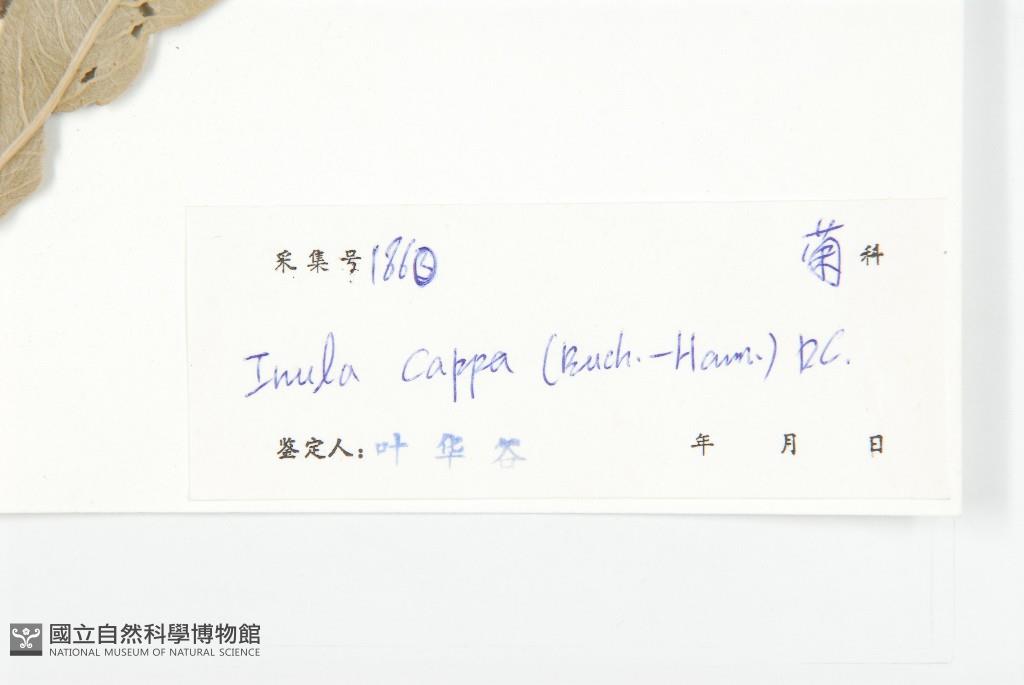 采集号 186 菊 科
Inula Cappa (Buch.-Ham.) DC.
鉴定人: 叶华谷 年 月 日
國立自然科學博物館
NATIONAL MUSEUM OF NATURAL SCIENCE